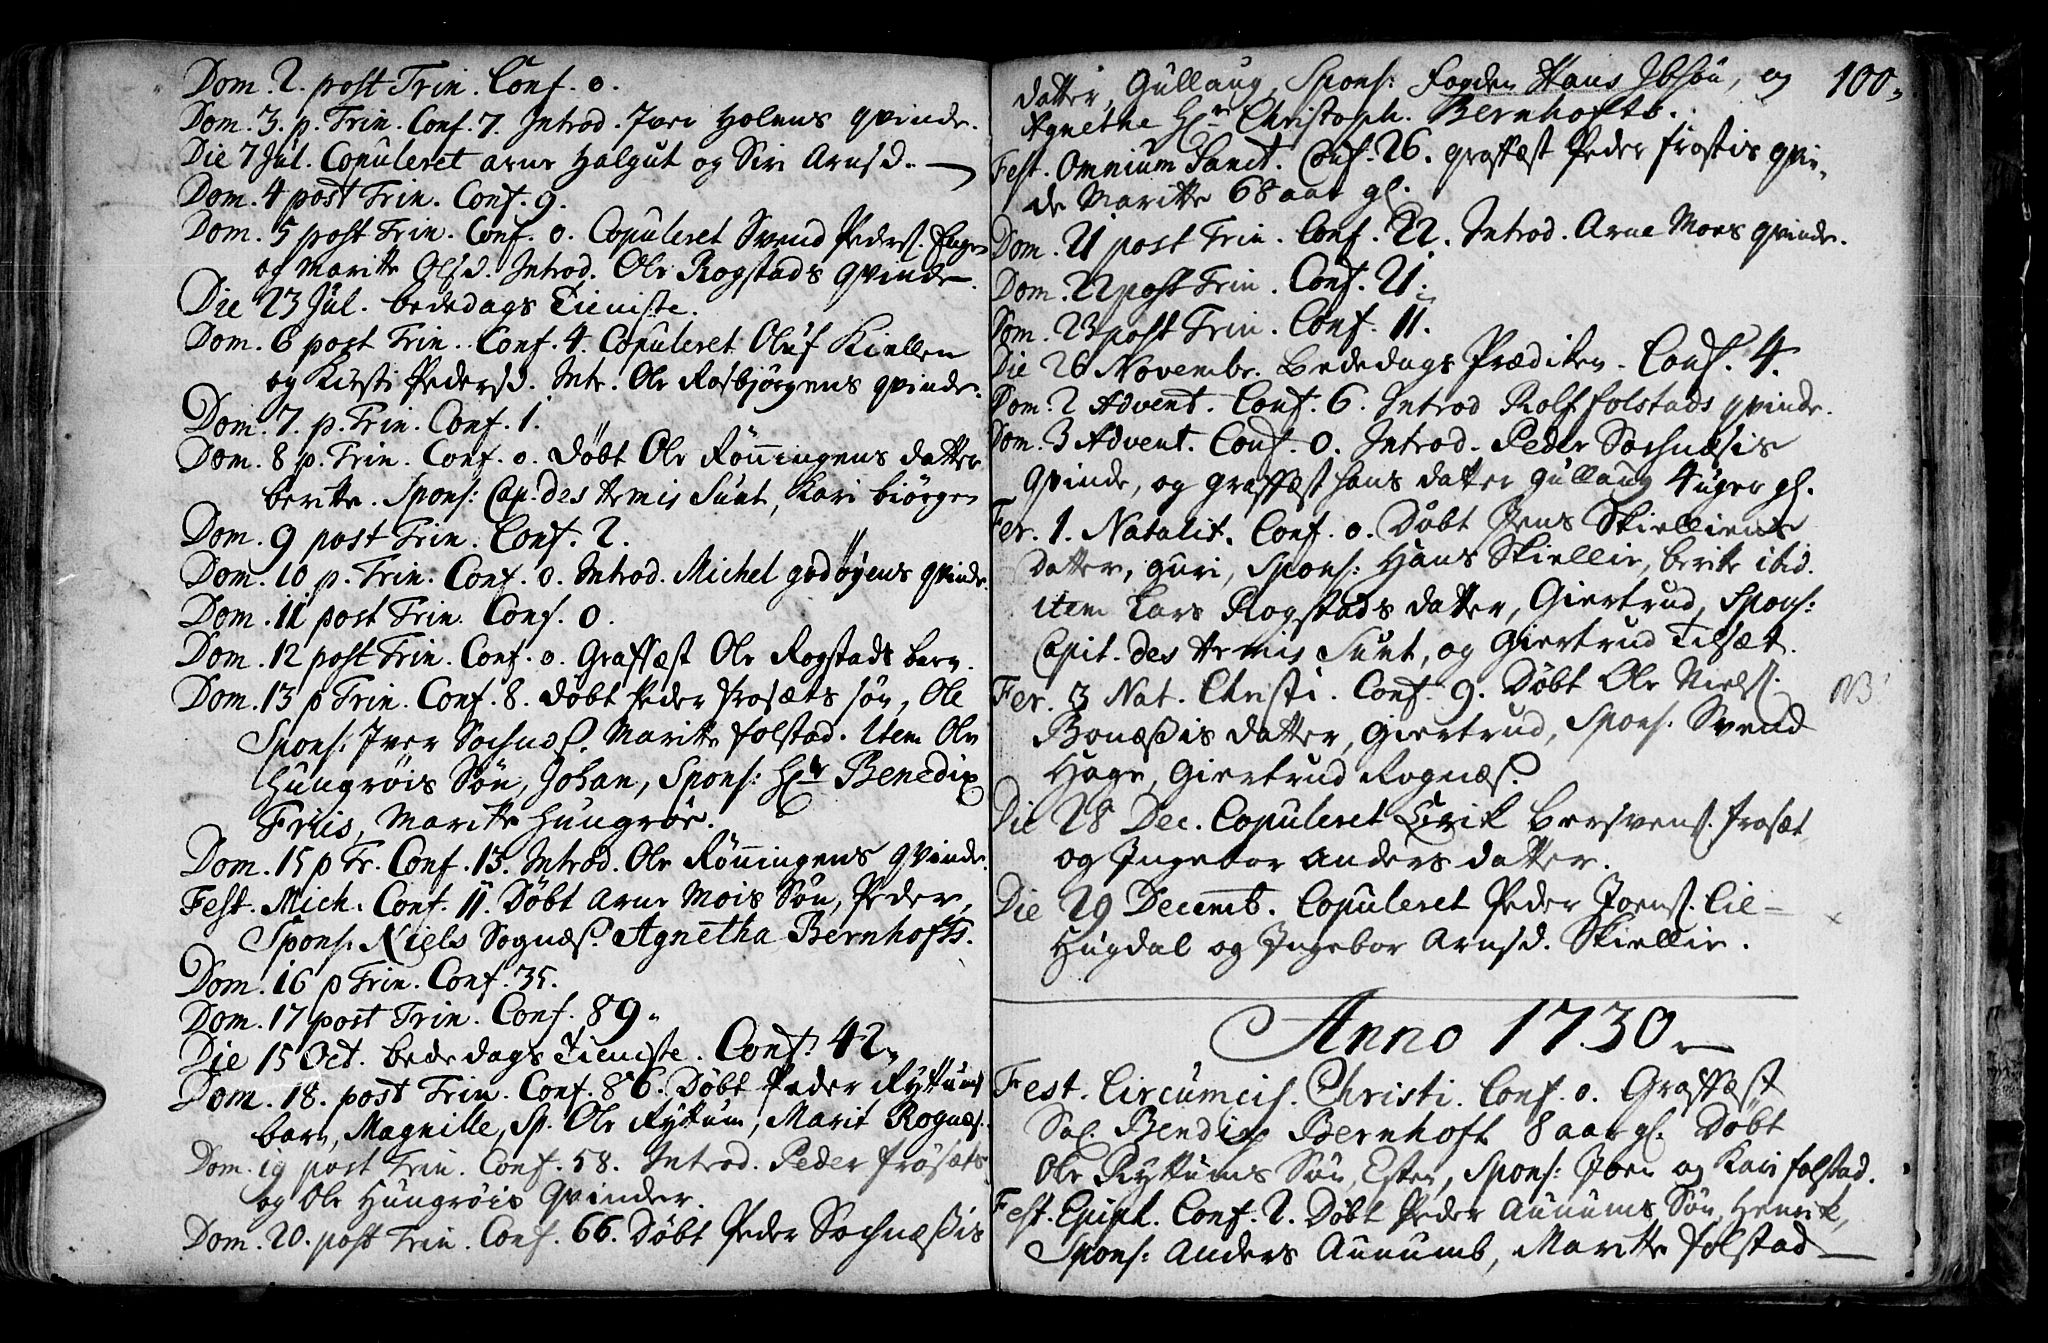 Dom. 2. post Trin. Conf. 0.
Dom. 3. p. Trin. Conf. 7. Introd. Iver Holens qvinde.
Die 7 Jul. Copuleret Arne Halgut og Siri Arnsd.
Dom. 4 post Trin. Conf. 9.
Dom. 5 post Trin. Conf. 0. Copuleret Svend Peders.
og Maritte Olsd. Introd. Ole Rogstads qvinde.
Die 23 Jul. bededags Tieniste.
Dom. 6 post Trin. Conf. 4. Copuleret Oluf Kiellen
og Kirsti Pedersd. Intr. Ole Rosbjørgens qvinde.
Dom. 7. p. Trin. Conf. 1.
Dom. 8 p. Trin. Conf. 0. Døbt Ole Rönningens datter
beritte. Spons: Cap. des Armis Sunt, Kari biörgen
Dom. 9 post Trin. Conf. 2.
Dom. 10 p. Trin. Conf. 0. Introd. Michel godøyens qvinde.
Dom. 11 post Trin. Conf. 0.
Dom. 12 post Trin. Conf. 0. Graffæst Ole Rogstads barn.
Dom. 13 p Trin. Conf. 8. Døbt Peder Frosæts søn, Ole
Spons: Iver Sochnæs. Maritte folstad. Item Ole
Hungröis Sön, Johan, Spons: Hr Benedix
Friis, Maritte Hungröe.
Dom. 15 p Tr. Conf. 13. Introd. Ole Rönningens qvinde.
Fest. Mich. Conf. 11. Døbt Arne Mois Sön, Peder,
Spons: Niels Sognæs. Agnetha Bernhofts.
Dom. 16 p Trin. Conf. 35.
Dom. 17 post Trin. Conf. 89.
Die 15 Oct. bededags Tieniste. Conf. 42.
Dom. 18. post Trin. Conf. 86. Døbt Peder Rykkums
barn, Magnille, Sp. Ole Rykkum, Marit Rognæs.
Dom. 19 post Trin. Conf. 58. Introd. Peder frösæts
og Ole Hungröis Qvinder.
Dom. 20. post Trin. Conf. 66. Døbt Peder Sochnæssis
datter, Gullaug, Spons: fogden Hans Ibsön, og 100.
Agnethe Hr Christoph. Bernhofts.
Fest. Omnium Sanct. Conf. 26. graffæst Peder frostis qvin-
de Maritte 68 aar gl.
Dom. 21 post Trin. Conf. 22. Introd. Arne Moes qvinde.
Dom. 22 post Trin. Conf. 21.
Dom. 23 post Trin. Conf. 11.
Die 26 Novembr. Bededags Prædiken. Conf. 4.
Dom. 2 Advent. Conf. 6. Introd Rolf folstads qvinde.
Dom. 3 Advent. Conf. 0. Introd. Peder Sochnæsis
Qvinde, og graffæst hans datter gullaug 4 uger gl.
Fer. 1. Natalit. Conf. 0. Døbt Jens Skielliens
Datter, guri, Spons: Hans Skiellie, berite ibid.
item Lars Rogstads datter, Giertrud, Spons:
Capit. des Armis Sunt, og Giertrud Tilsæt.
Fer. 3 Nat. Christi. Conf. 9. Døbt Ole Niels. NB
Bonæssis datter, Giertrud, Spons: Svend
Hage, Giertrud Rognæs.
Die 28 Dec. Copuleret Erik Bersvens. frosæt
og Ingebor Anders datter.
Die 29 Decemb. Copuleret Peder Joens. Lie- x
Hugdal og Ingebor Arnsd. Skiellie.
Anno 1730
Fest. Circumcis. Christi. Conf. 0. Graffæst
Sal. Bendix Bernhoft 8 aar gl. Døbt
Ole Rykkums Sön, Esten, Spons: Joen og Kari folstad.
Fest. Epiph. Conf. 2. Døbt Peder Aunums Sön, Henrik,
Spons: Anders Aunumb, Maritte folstad